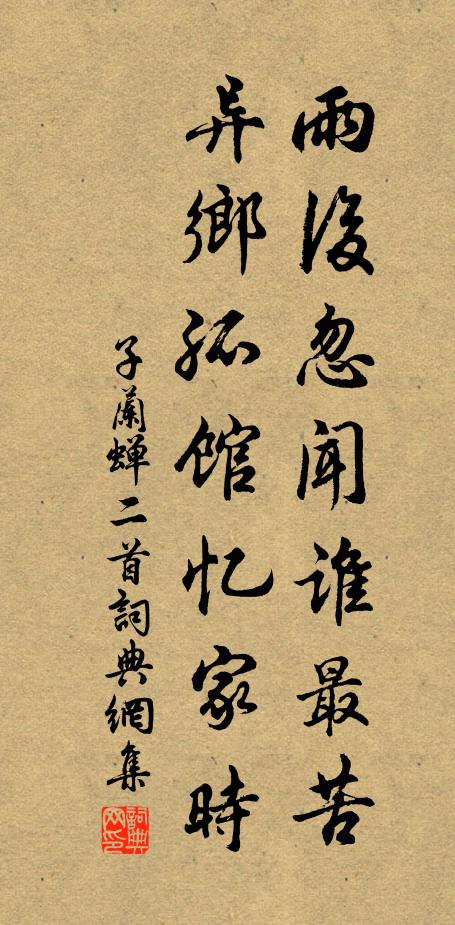 雨後忽闻谁最苦
异鄉孤馆忆家時
子蘭蝉二首詞典網集
詞典网印